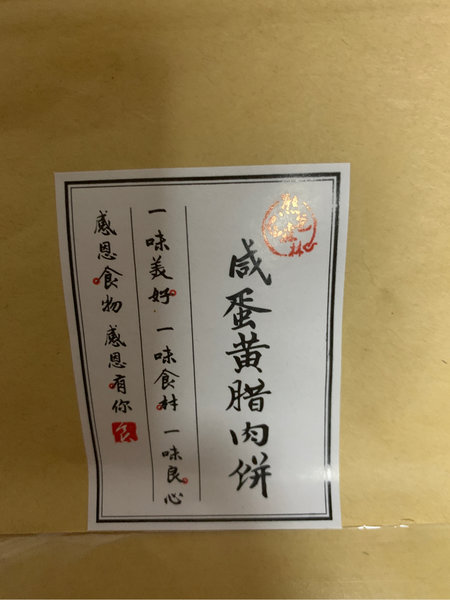 咸蛋黄腊肉饼
一味美好 一味食材 一味良心
感恩食物 感恩有你